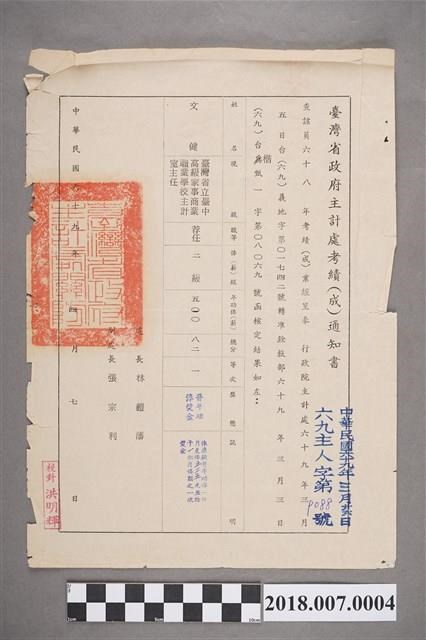 臺灣省政府主計處考績(成)通知書
中華民國六九年三月 日
六九主人字第9088號
查該員六十八年考績(成)業經呈奉 行政院主計處六十九年三月
五日台(六九)義地字第〇一七四二號轉准銓敘部六十九年三月三日
(六九)台楷甄一字第〇八〇六九號函核定結果如左：
姓名 現職 職等 俸(薪)級 年功俸(薪) 總分 等次 獎懲 說明
文健
臺灣省立臺中
高級家事商業
職業學校主計
室主任
荐任
二級
五〇〇
八二
一
晉年功
俸獎金
處長林
副處長張宗利
中華民國六十九年四月七日
校對 洪明輝
2018.007.0004